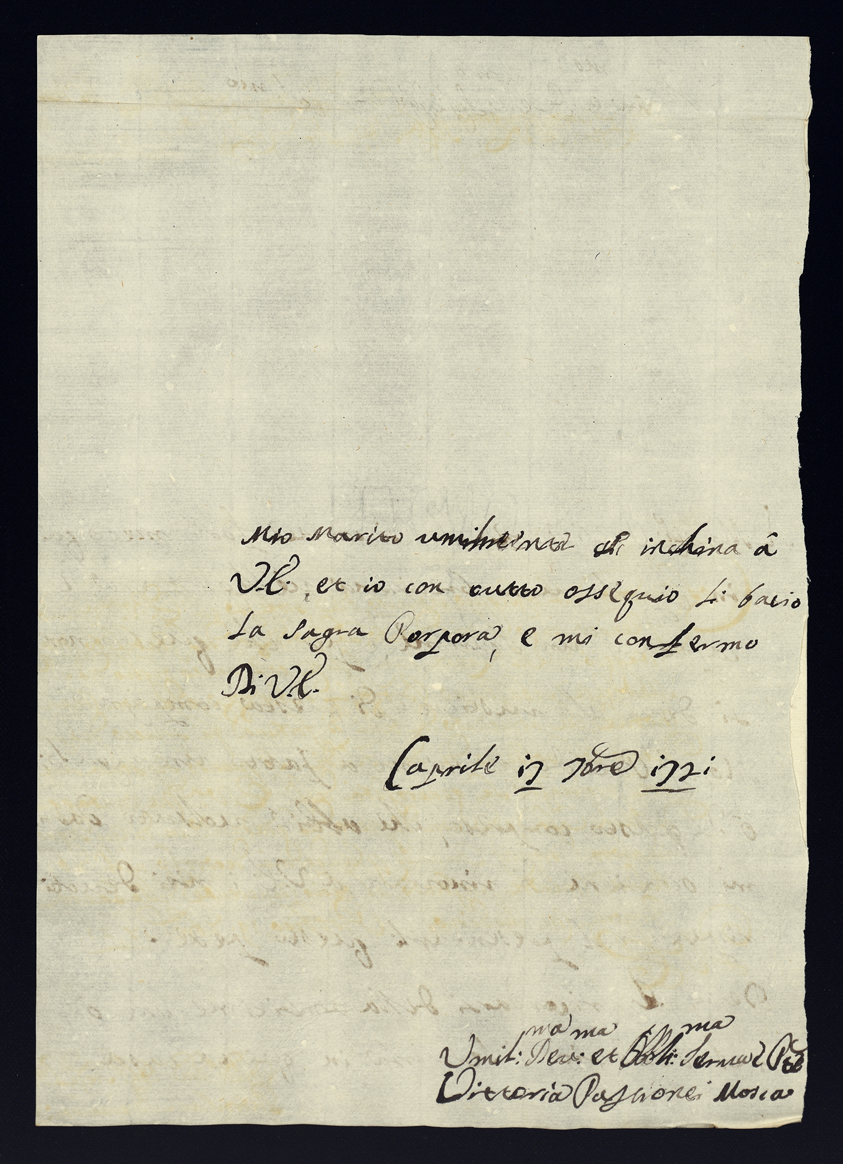 Mio Marito umilmente si inchina â
V.E., et io con tutto ossequio Li bacio
La Sagra Porpora, e mi confermo
Di V.E.
Caprile 17 7bre 1771
Umil:ma Dev:ma et Obbli:ma Serva
Vittoria Passionei Mosca